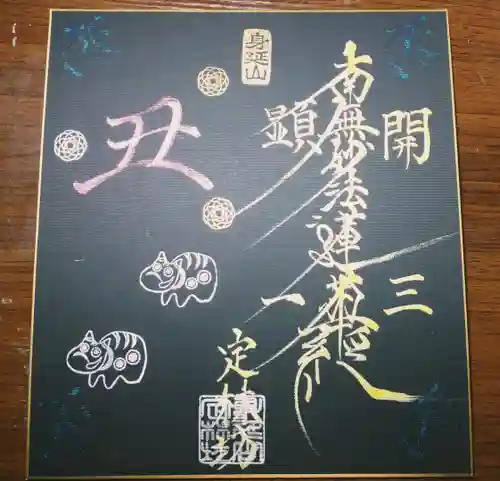 身延山
開三
南無妙法蓮華経
顕一
定林坊
丑